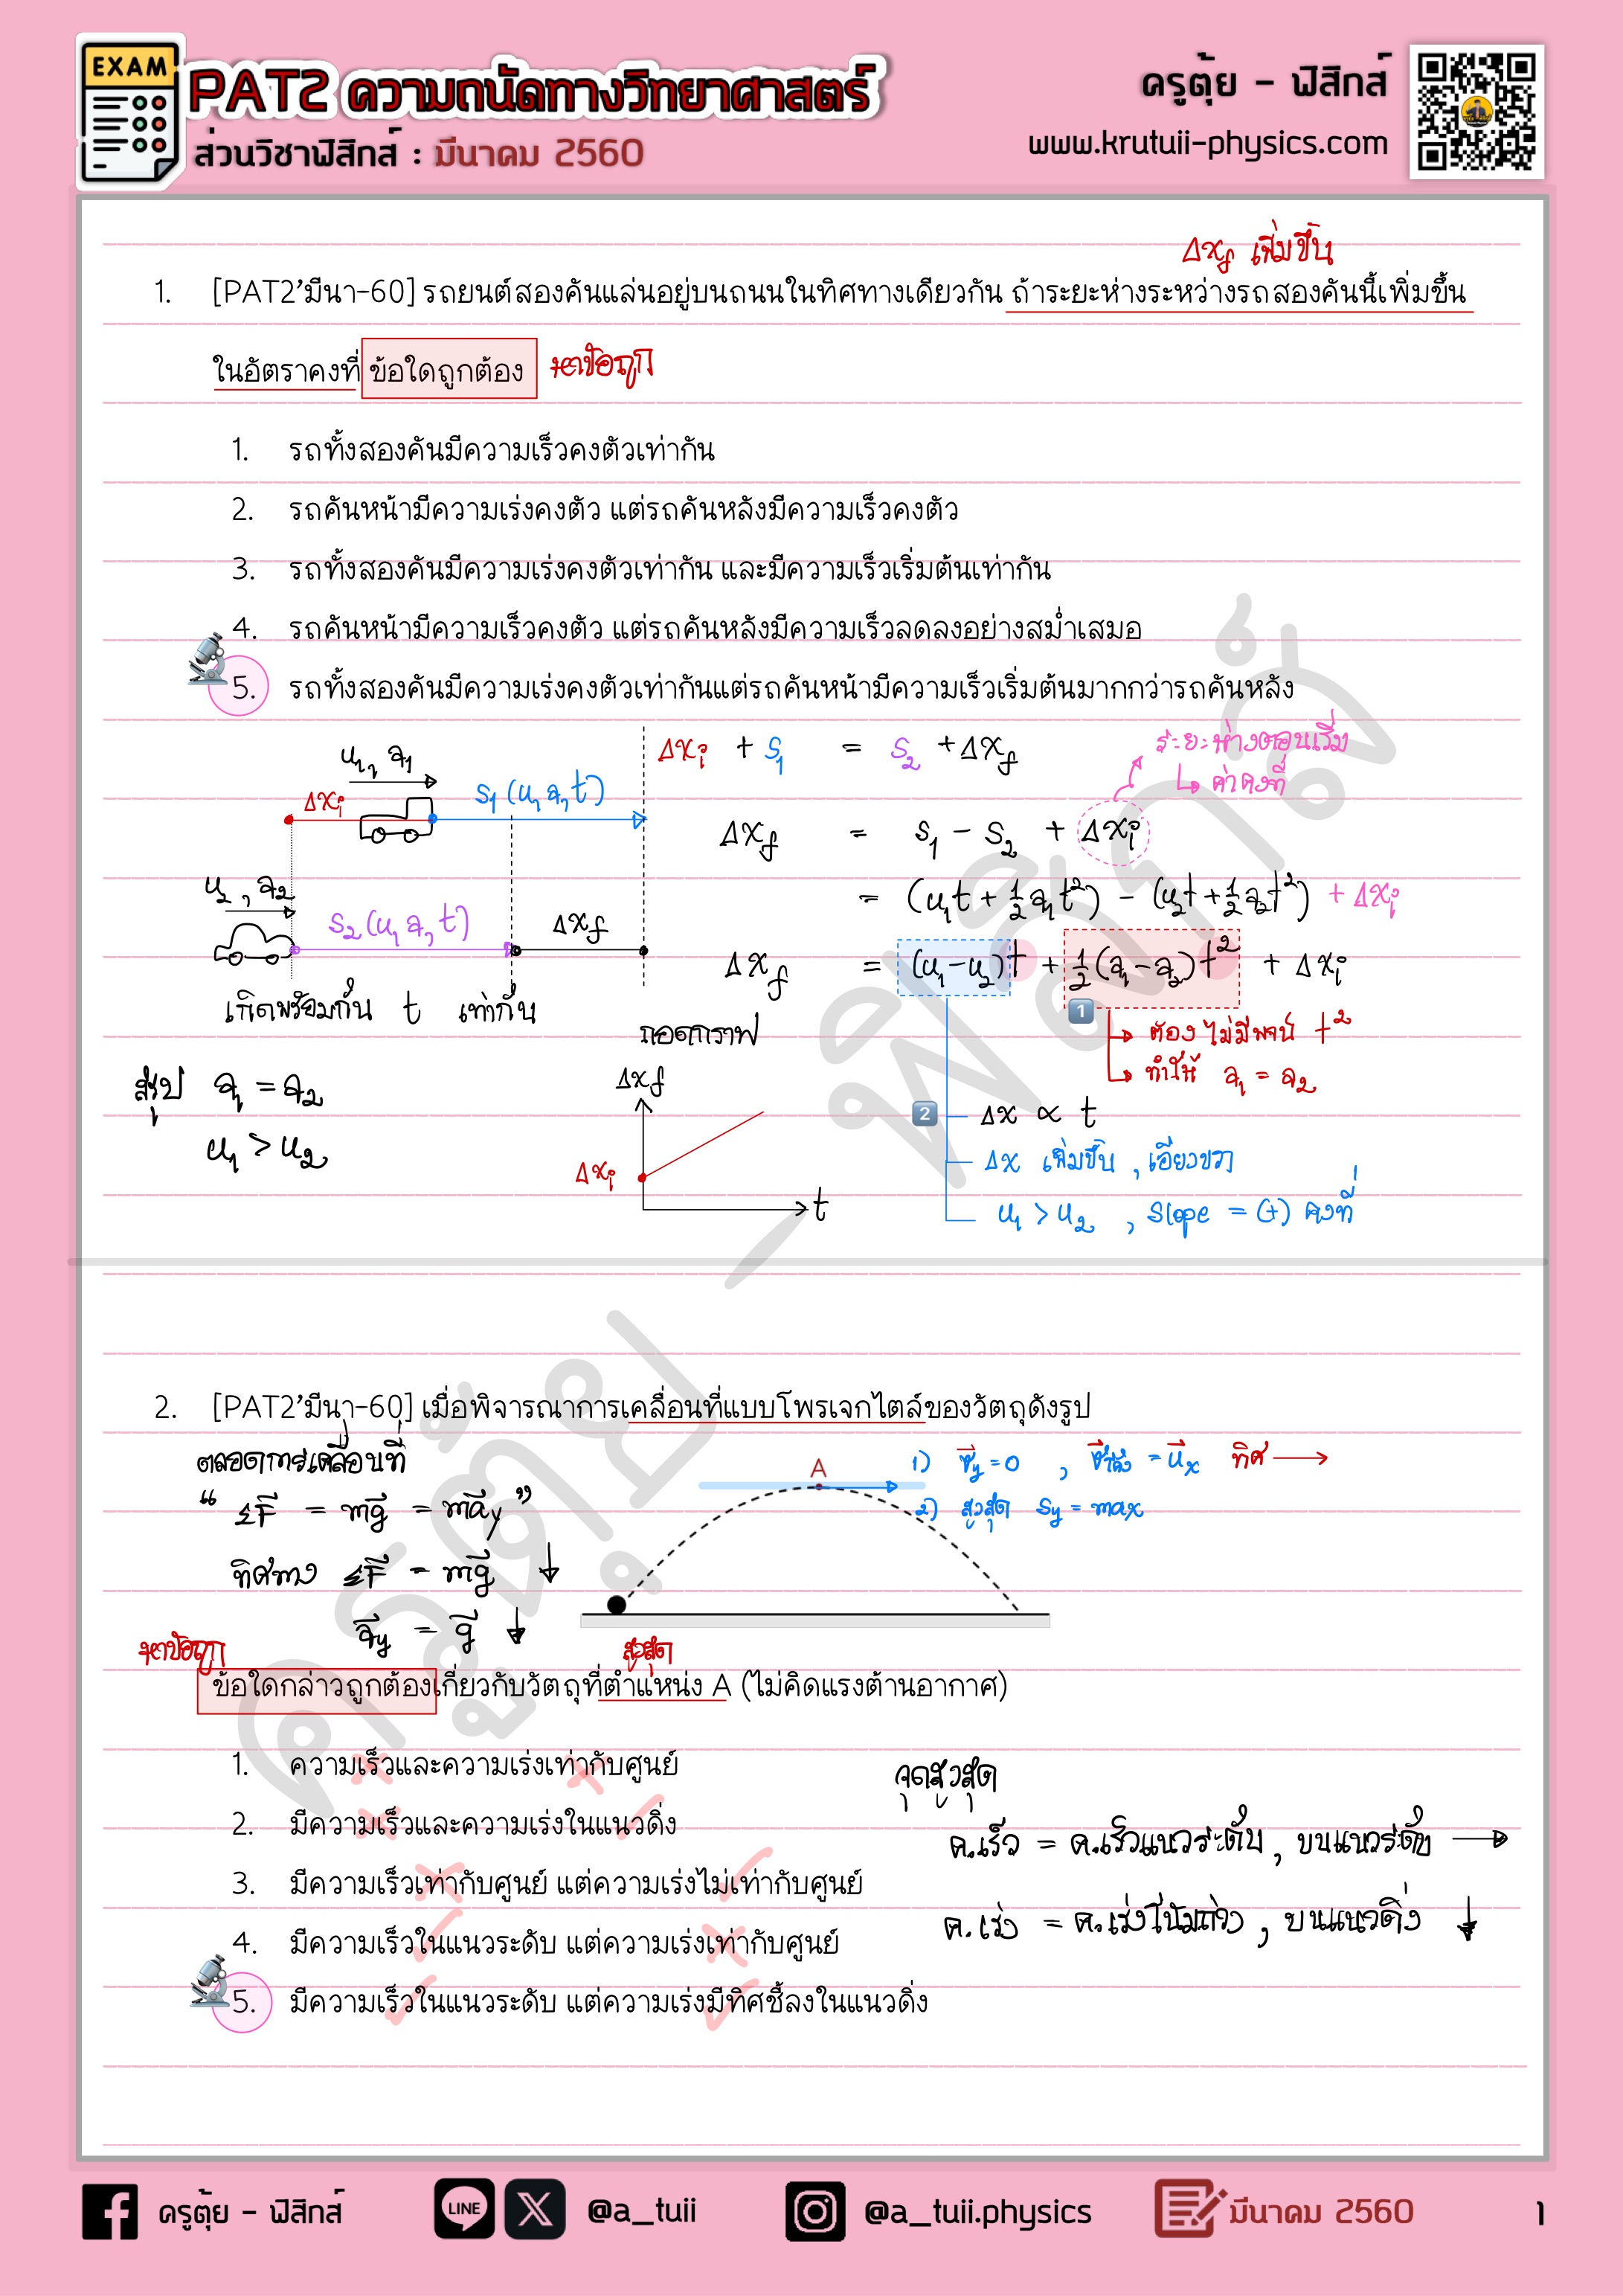 EXAM
PAT2 ความถนัดทางวิทยาศาสตร์
ส่วนวิชาฟิสิกส์ : มีนาคม 2560
ครูตุ้ย - ฟิสิกส์
www.krutuii-physics.com
Δx_f เพิ่มขึ้น
1. [PAT2'มีนา-60] รถยนต์สองคันแล่นอยู่บนถนนในทิศทางเดียวกัน ถ้าระยะห่างระหว่างรถสองคันนี้เพิ่มขึ้น
ในอัตราคงที่ ข้อใดถูกต้อง หาข้อถูก
1. รถทั้งสองคันมีความเร็วคงตัวเท่ากัน
2. รถคันหน้ามีความเร่งคงตัว แต่รถคันหลังมีความเร็วคงตัว
3. รถทั้งสองคันมีความเร่งคงตัวเท่ากัน และมีความเร็วเริ่มต้นเท่ากัน
4. รถคันหน้ามีความเร็วคงตัว แต่รถคันหลังมีความเร็วลดลงอย่างสม่ำเสมอ
5. รถทั้งสองคันมีความเร่งคงตัวเท่ากันแต่รถคันหน้ามีความเร็วเริ่มต้นมากกว่ารถคันหลัง
u₁, a₁
Δx_i
S₁(u, a, t)
u₂, a₂
S₂(u, a, t)
Δx_f
เกิดพร้อมกัน t เท่ากัน
Δx_i + S₁ = S₂ + Δx_f
ระยะห่างตอนเริ่ม
↳ ค่าคงที่
Δx_f = S₁ - S₂ + Δx_i
= (u₁t + ½a₁t²) - (u₂t + ½a₂t²) + Δx_i
Δx_f = (u₁-u₂)t + ½(a₁-a₂)t² + Δx_i
1
↳ ต้องไม่มีพจน์ t²
↳ ทำให้ a₁ = a₂
2
Δx ∝ t
Δx เพิ่มขึ้น, เอียงขวา
u₁ > u₂, slope = (+) คงที่
ถอดกราฟ
Δx_f
Δx_i
t
สรุป a₁ = a₂
u₁ > u₂
2. [PAT2'มีนา-60] เมื่อพิจารณาการเคลื่อนที่แบบโพรเจกไตล์ของวัตถุดังรูป
ตลอดการเคลื่อนที่
“ ΣF = mg = ma_y ”
ทิศทาง ΣF = mg ↓
a_y = g ↓
A
1) v_y = 0 , = u_x ทิศ →
2) สูงสุด S_y = max
หาข้อถูก
สูงสุด
ข้อใดกล่าวถูกต้องเกี่ยวกับวัตถุที่ตำแหน่ง A (ไม่คิดแรงต้านอากาศ)
1. ความเร็วและความเร่งเท่ากับศูนย์
2. มีความเร็วและความเร่งในแนวดิ่ง
3. มีความเร็วเท่ากับศูนย์ แต่ความเร่งไม่เท่ากับศูนย์
4. มีความเร็วในแนวระดับ แต่ความเร่งเท่ากับศูนย์
5. มีความเร็วในแนวระดับ แต่ความเร่งมีทิศชี้ลงในแนวดิ่ง
จุดสูงสุด
ค.เร็ว = ค.เร็วแนวระดับ, ขนแนวระดับ →
ค.เร่ง = ค.เร่งโน้มถ่วง, ขนแนวดิ่ง ↓
ครูตุ้ย - ฟิสิกส์
ครูตุ้ย - ฟิสิกส์
LINE
@a_tuii
@a_tuii.physics
มีนาคม 2560
1